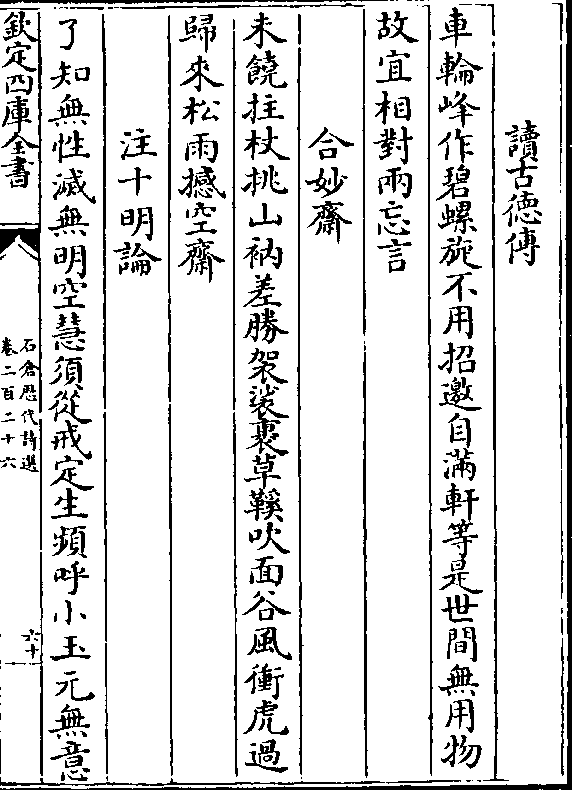 讀古德傳
車輪峰作碧螺旋不用招邀自滿軒等是世間無用物
故宜相對兩忘言
合妙齋
未饒拄杖挑山衲差勝袈裟裹草鞵吹面谷風衝虎過
歸來松雨撼空齋
注十明論
了知無性滅無明空慧須從戒定生頻呼小玉元無意
欽定四庫全書
石倉歷代詩選
卷二百二十六
六十